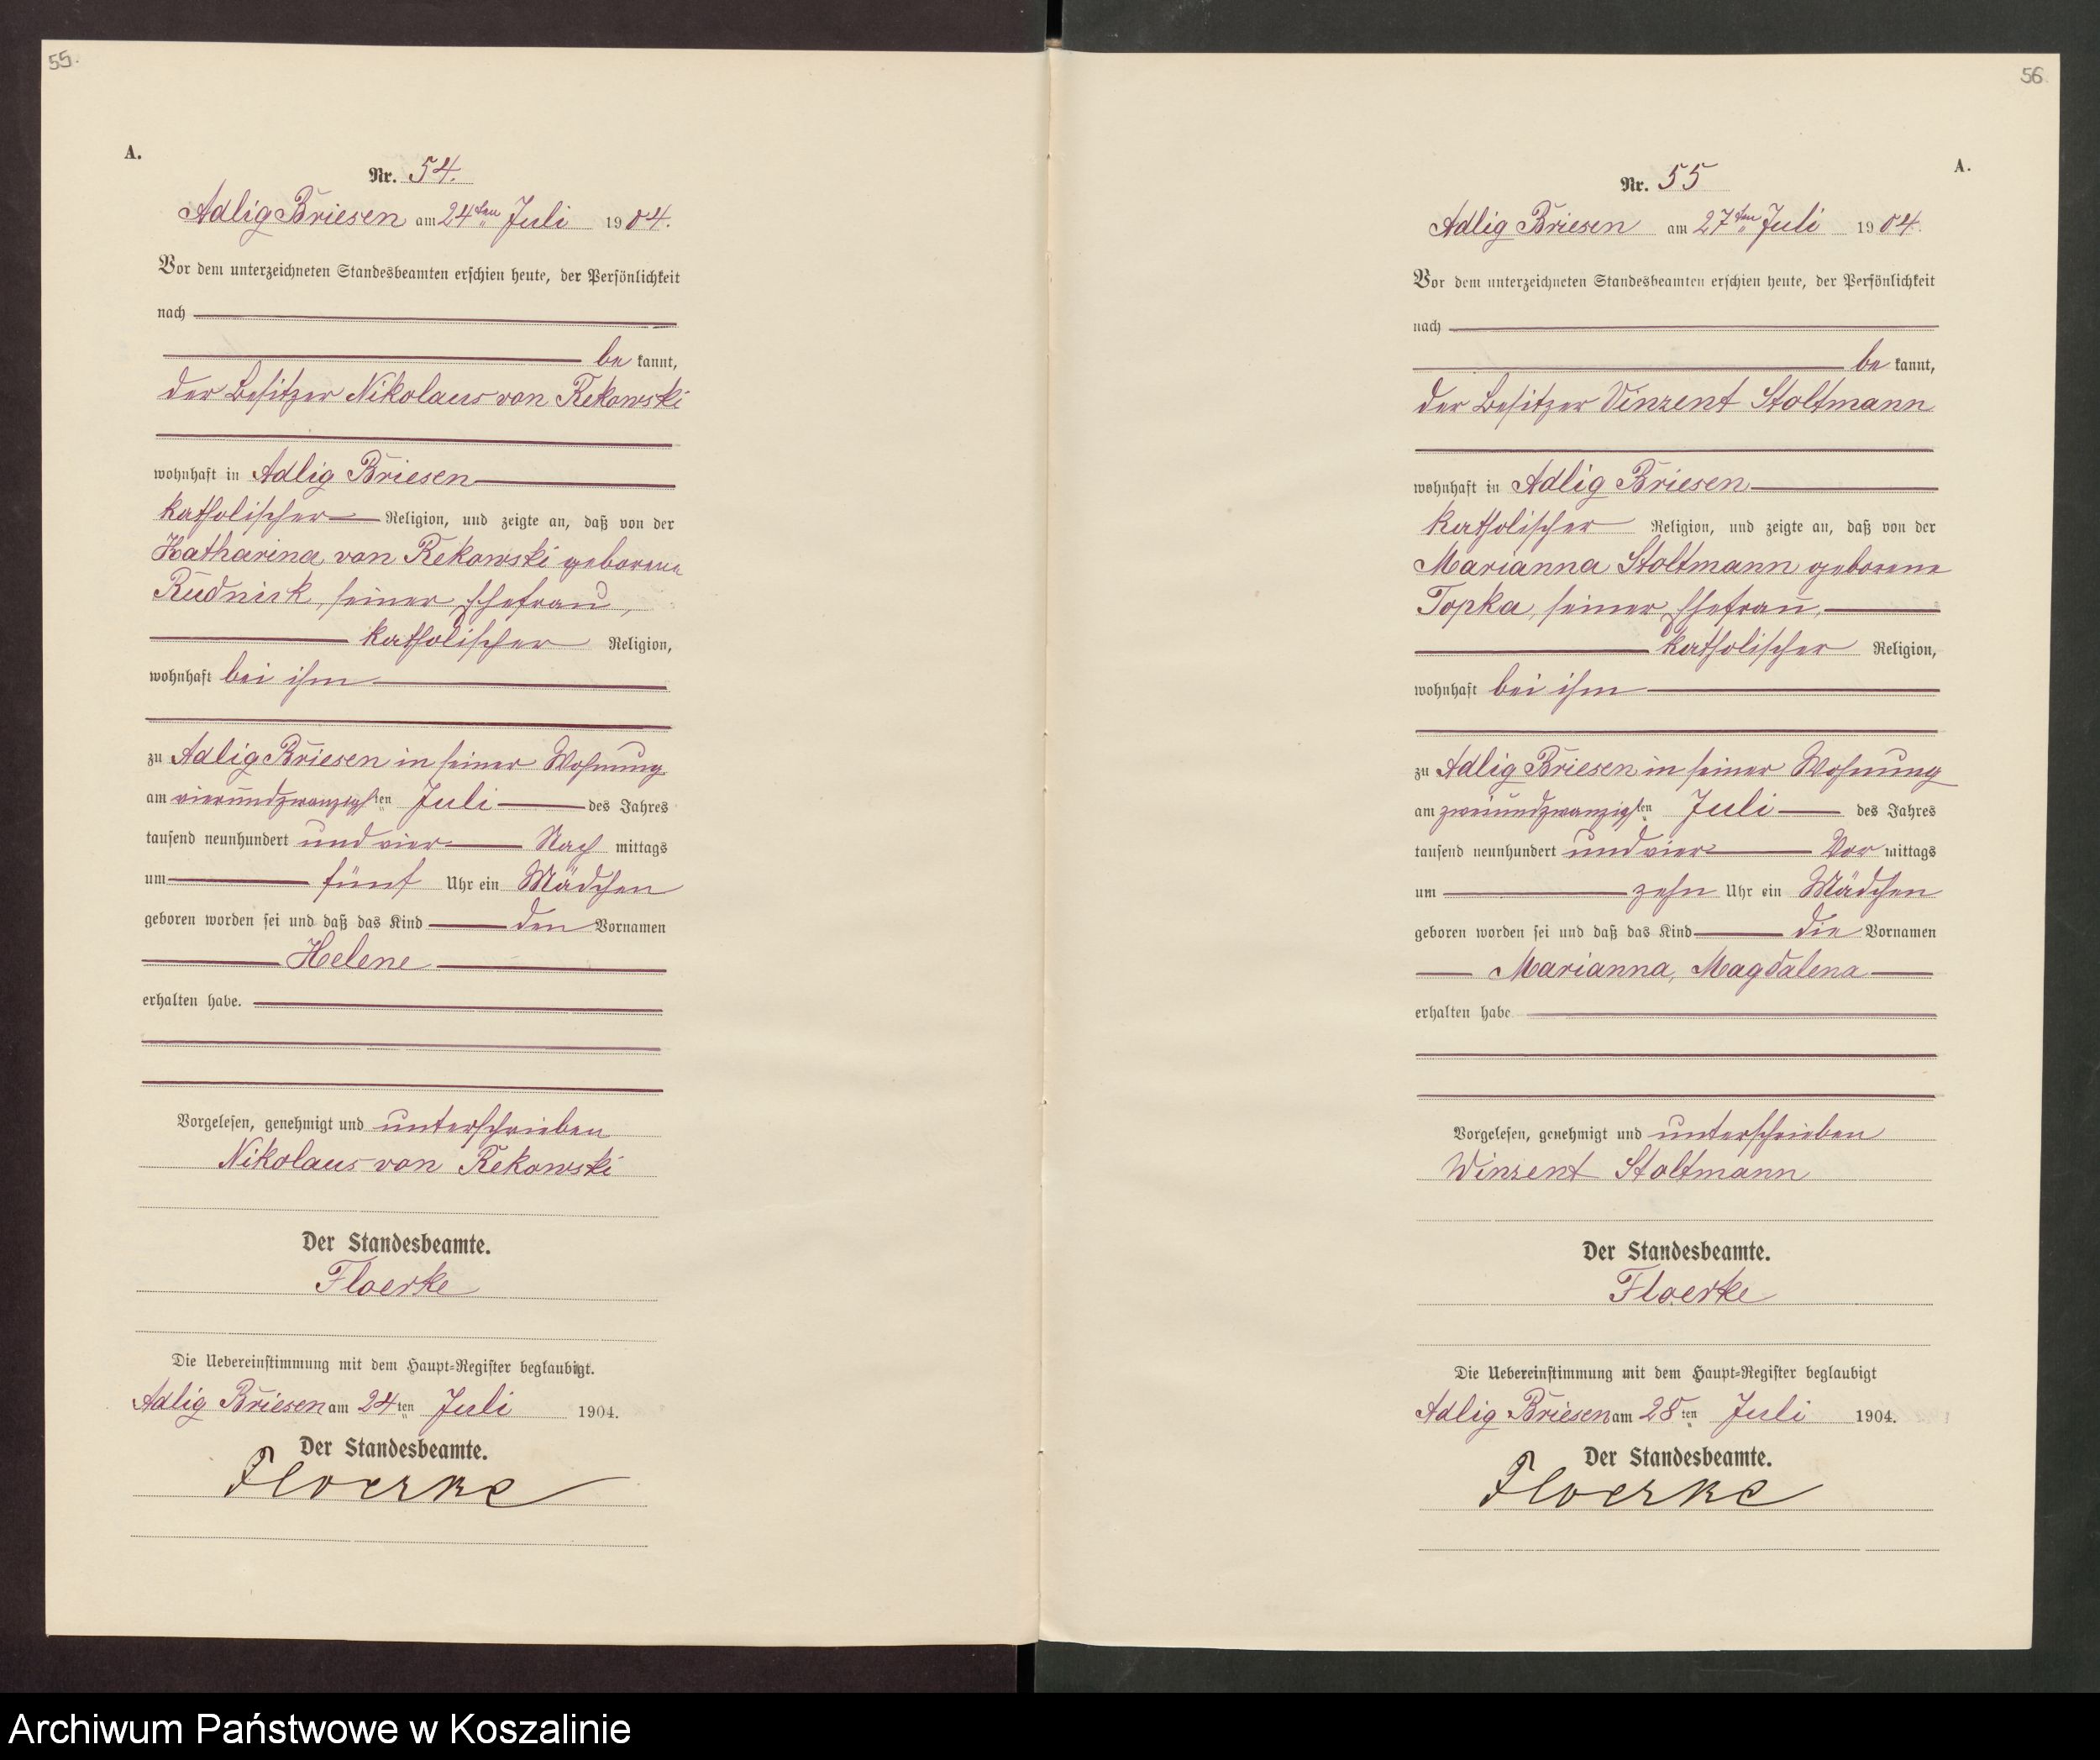 55.
A.
Nr. 54.
Adlig Briesen am 24ten Juli 1904.
Vor dem unterzeichneten Standesbeamten erschien heute, der Persönlichkeit
nach
be kannt,
der Besitzer Nikolaus von Rekowski
wohnhaft in Adlig Briesen
katholischer Religion, und zeigte an, daß von der
Katharina von Rekowski geborene
Rudnick, seiner Ehefrau,
katholischer Religion,
wohnhaft bei ihm
zu Adlig Briesen in seiner Wohnung
am vierundzwanzigsten Juli des Jahres
tausend neunhundert und vier Nach mittags
um fünf Uhr ein Mädchen
geboren worden sei und daß das Kind den Vornamen
Helene
erhalten habe.
Vorgelesen, genehmigt und unterschrieben
Nikolaus von Rekowski
Der Standesbeamte.
Floerke
Die Uebereinstimmung mit dem Haupt-Register beglaubigt.
Adlig Briesen am 24ten Juli 1904.
Der Standesbeamte.
Floerke
56
A.
Nr. 55
Adlig Briesen am 27ten Juli 1904.
Vor dem unterzeichneten Standesbeamten erschien heute, der Persönlichkeit
nach
be kannt,
der Besitzer Vinzent Stoltmann
wohnhaft in Adlig Briesen
katholischer Religion, und zeigte an, daß von der
Marianna Stoltmann geborene
Topka, seiner Ehefrau,
katholischer Religion,
wohnhaft bei ihm
zu Adlig Briesen in seiner Wohnung
am zweiundzwanzigsten Juli des Jahres
tausend neunhundert und vier Vor mittags
um zehn Uhr ein Mädchen
geboren worden sei und daß das Kind die Vornamen
Marianna, Magdalena
erhalten habe
Vorgelesen, genehmigt und unterschrieben
Winzent Stoltmann
Der Standesbeamte.
Floerke
Die Uebereinstimmung mit dem Haupt-Register beglaubigt
Adlig Briesen am 28ten Juli 1904.
Der Standesbeamte.
Floerke
Archiwum Państwowe w Koszalinie